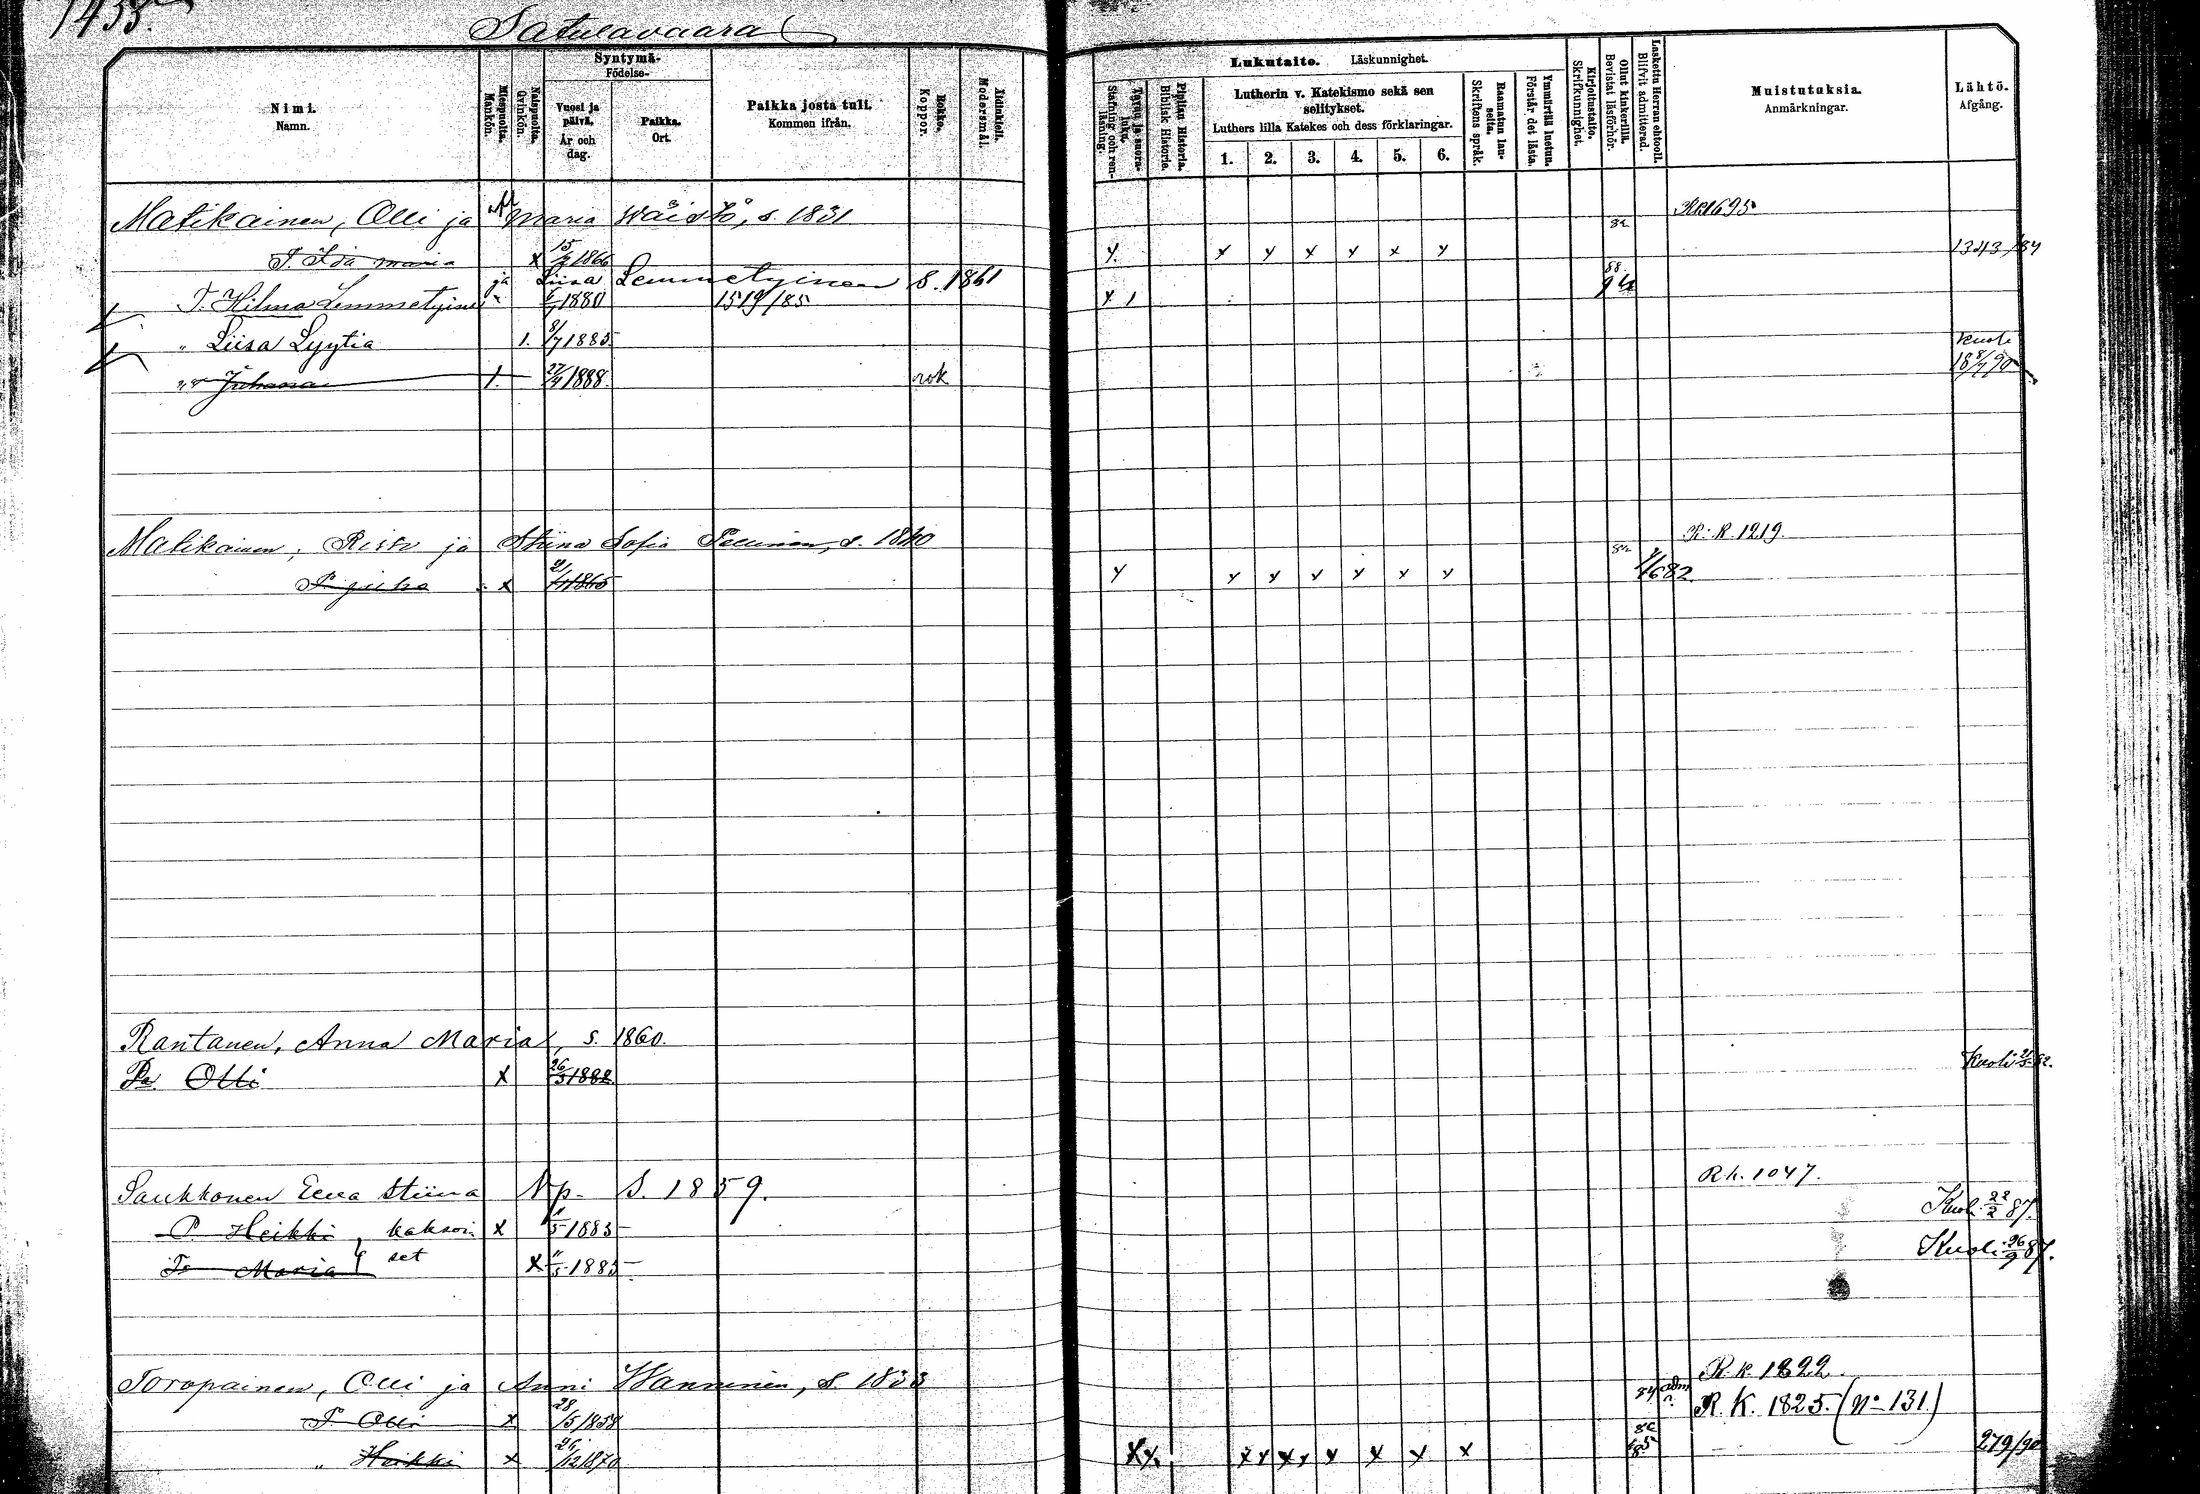 1455.
Satulavaara
Syntymä-
Födelse-
Nimi.
Namn.
Miespuolta.
Mankön.
Naispuolta.
Qvinkön.
Vuosi ja päivä.
År och dag.
Paikka.
Ort.
Paikka josta tuli.
Kommen ifrån.
Rokko.
Koppor.
Äidinkieli.
Modersmål.
Lukutaito. Läskunnighet.
Tavuu ja suora-luku.
Stafning och ren-läsning.
Piplian Historia.
Biblisk Historie.
Lutherin v. Katekismo sekä sen selitykset.
Luthers lilla Katekes och dess förklaringar.
1. 2. 3. 4. 5. 6.
Raamatun lauseita.
Skriftens språk.
Ymmärtää luetun.
Förstår det lästa.
Kirjoitustaito.
Skrifkunnighet.
Ollut kinkerillä.
Bevistat läsförhör.
Laskettu Herran ehtooll.
Blifvit admitterad.
Muistutuksia.
Anmärkningar.
Lähtö.
Afgång.
Matikainen, Olli ja Maria Wäistö, s. 1831 Rk 1695
T. Ida Maria x 15/2 1866 x x x x x x 82 1343/84
ja Liisa Lemmetyinen s. 1861 88.
T. Hilma Lemmetyine 1880 1519/85
" Liisa Lyytia 1. 8/7 1885 Kuoli
Juhana 1. 27/4 1888 rok 18 8/7 90
Matikainen, Risto ja Stiina Sofia s. 1840 R. K. 1219.
P. Juha x 21/ 1865 x x x x x x 82
Rantanen, Anna Maria, s. 1860.
Pa Olli x 26/3 1882 Kuoli 82.
Saukkonen Eeva Stiina Np. S. 1859. R.k. 1047.
P Heikki kaksoi- x 11/5 1885 Kuoli 22/2 87.
Ta Maria set x 11/5 1885 Kuoli 26/9 87.
Toropainen, Olli ja Anni Wanninen, s. 1833 R. k. 1822.
P Olli x 28/5 1858 84 adm R. K. 1825. (No 131)
" Heikki x 26/12 1870 x x x x x x 279/90